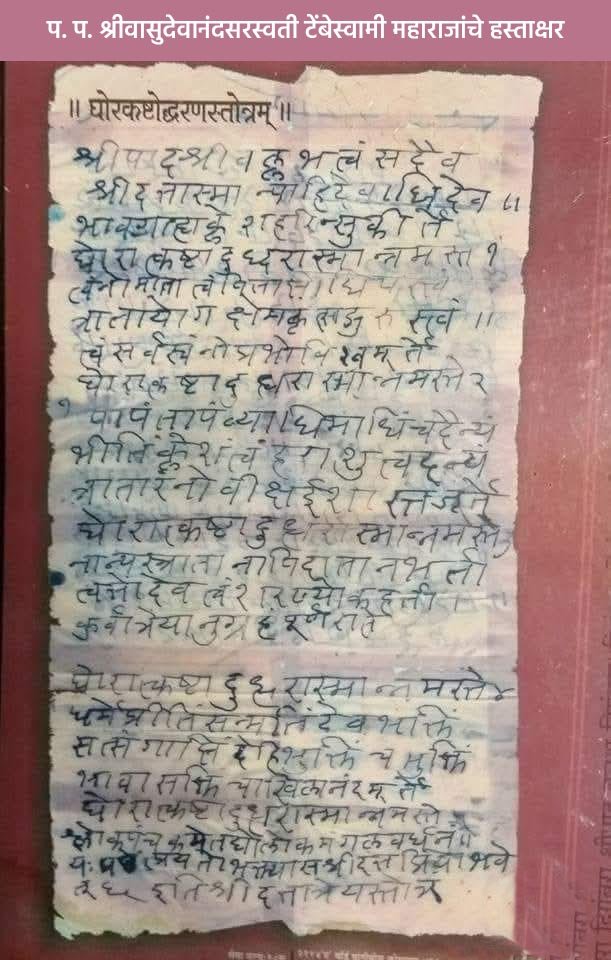 प. प. श्रीवासुदेवानंदसरस्वती टेंबेस्वामी महाराजांचे हस्ताक्षर
॥ घोरकष्टोद्धरणस्तोत्रम् ॥
श्रीपादश्रीवल्लभत्वं सदैव
श्रीदत्तास्मान्पाहिदेवाधिदेव ॥
भावग्राह्यक्लेशहारिन्सुकीर्ते
घोरात्कष्टादुध्धरास्मान्नमस्ते १
त्वंनोमातात्वंपिताप्तोधिपस्त्वं
त्रातायोगक्षेमकृत्सद्गुरुस्त्वं ॥
त्वंसर्वस्वंनोप्रभोविश्वमूर्ते
घोरात्कष्टादुध्धरास्मान्नमस्ते २
पापंतापंव्याधिमाधिंचदैन्यं
भीतिंक्लेशंत्वंहराशुत्वदन्यं
त्रातारंनोवीक्षईशास्तजूर्ते
घोरात्कष्टादुध्धरास्मान्नमस्ते३
नान्यस्त्रातानापिदातानभर्ता
त्वत्तोदेवत्वंशरण्योकहर्ता
कुर्वात्रेयानुग्रहंपूर्णराते
घोरात्कष्टादुध्धरास्मान्नमस्ते४
धर्मेप्रीतिंसन्मतिंदेवभक्तिं
सत्संगाप्तिंदेहिभुक्तिंचमुक्तिं
भावासक्तिंचाखिलानंदमूर्ते
घोरात्कष्टादुध्धरास्मान्नमस्ते
श्लोकपंचकमेतद्योलोकमंगलवर्धनं॥
प्रपठेन्नियतोभक्त्यासश्रीदत्तप्रियोभवे
इतिश्रीदत्तात्रेयस्तोत्रं